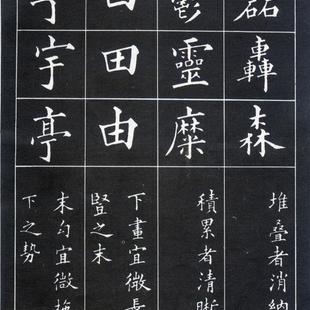 磊
轟
森
堆叠者消納
靈
糜
積累者清晰
田
由
下畫宜微長
豎之末
宇
亭
末勾宜微
下之勢